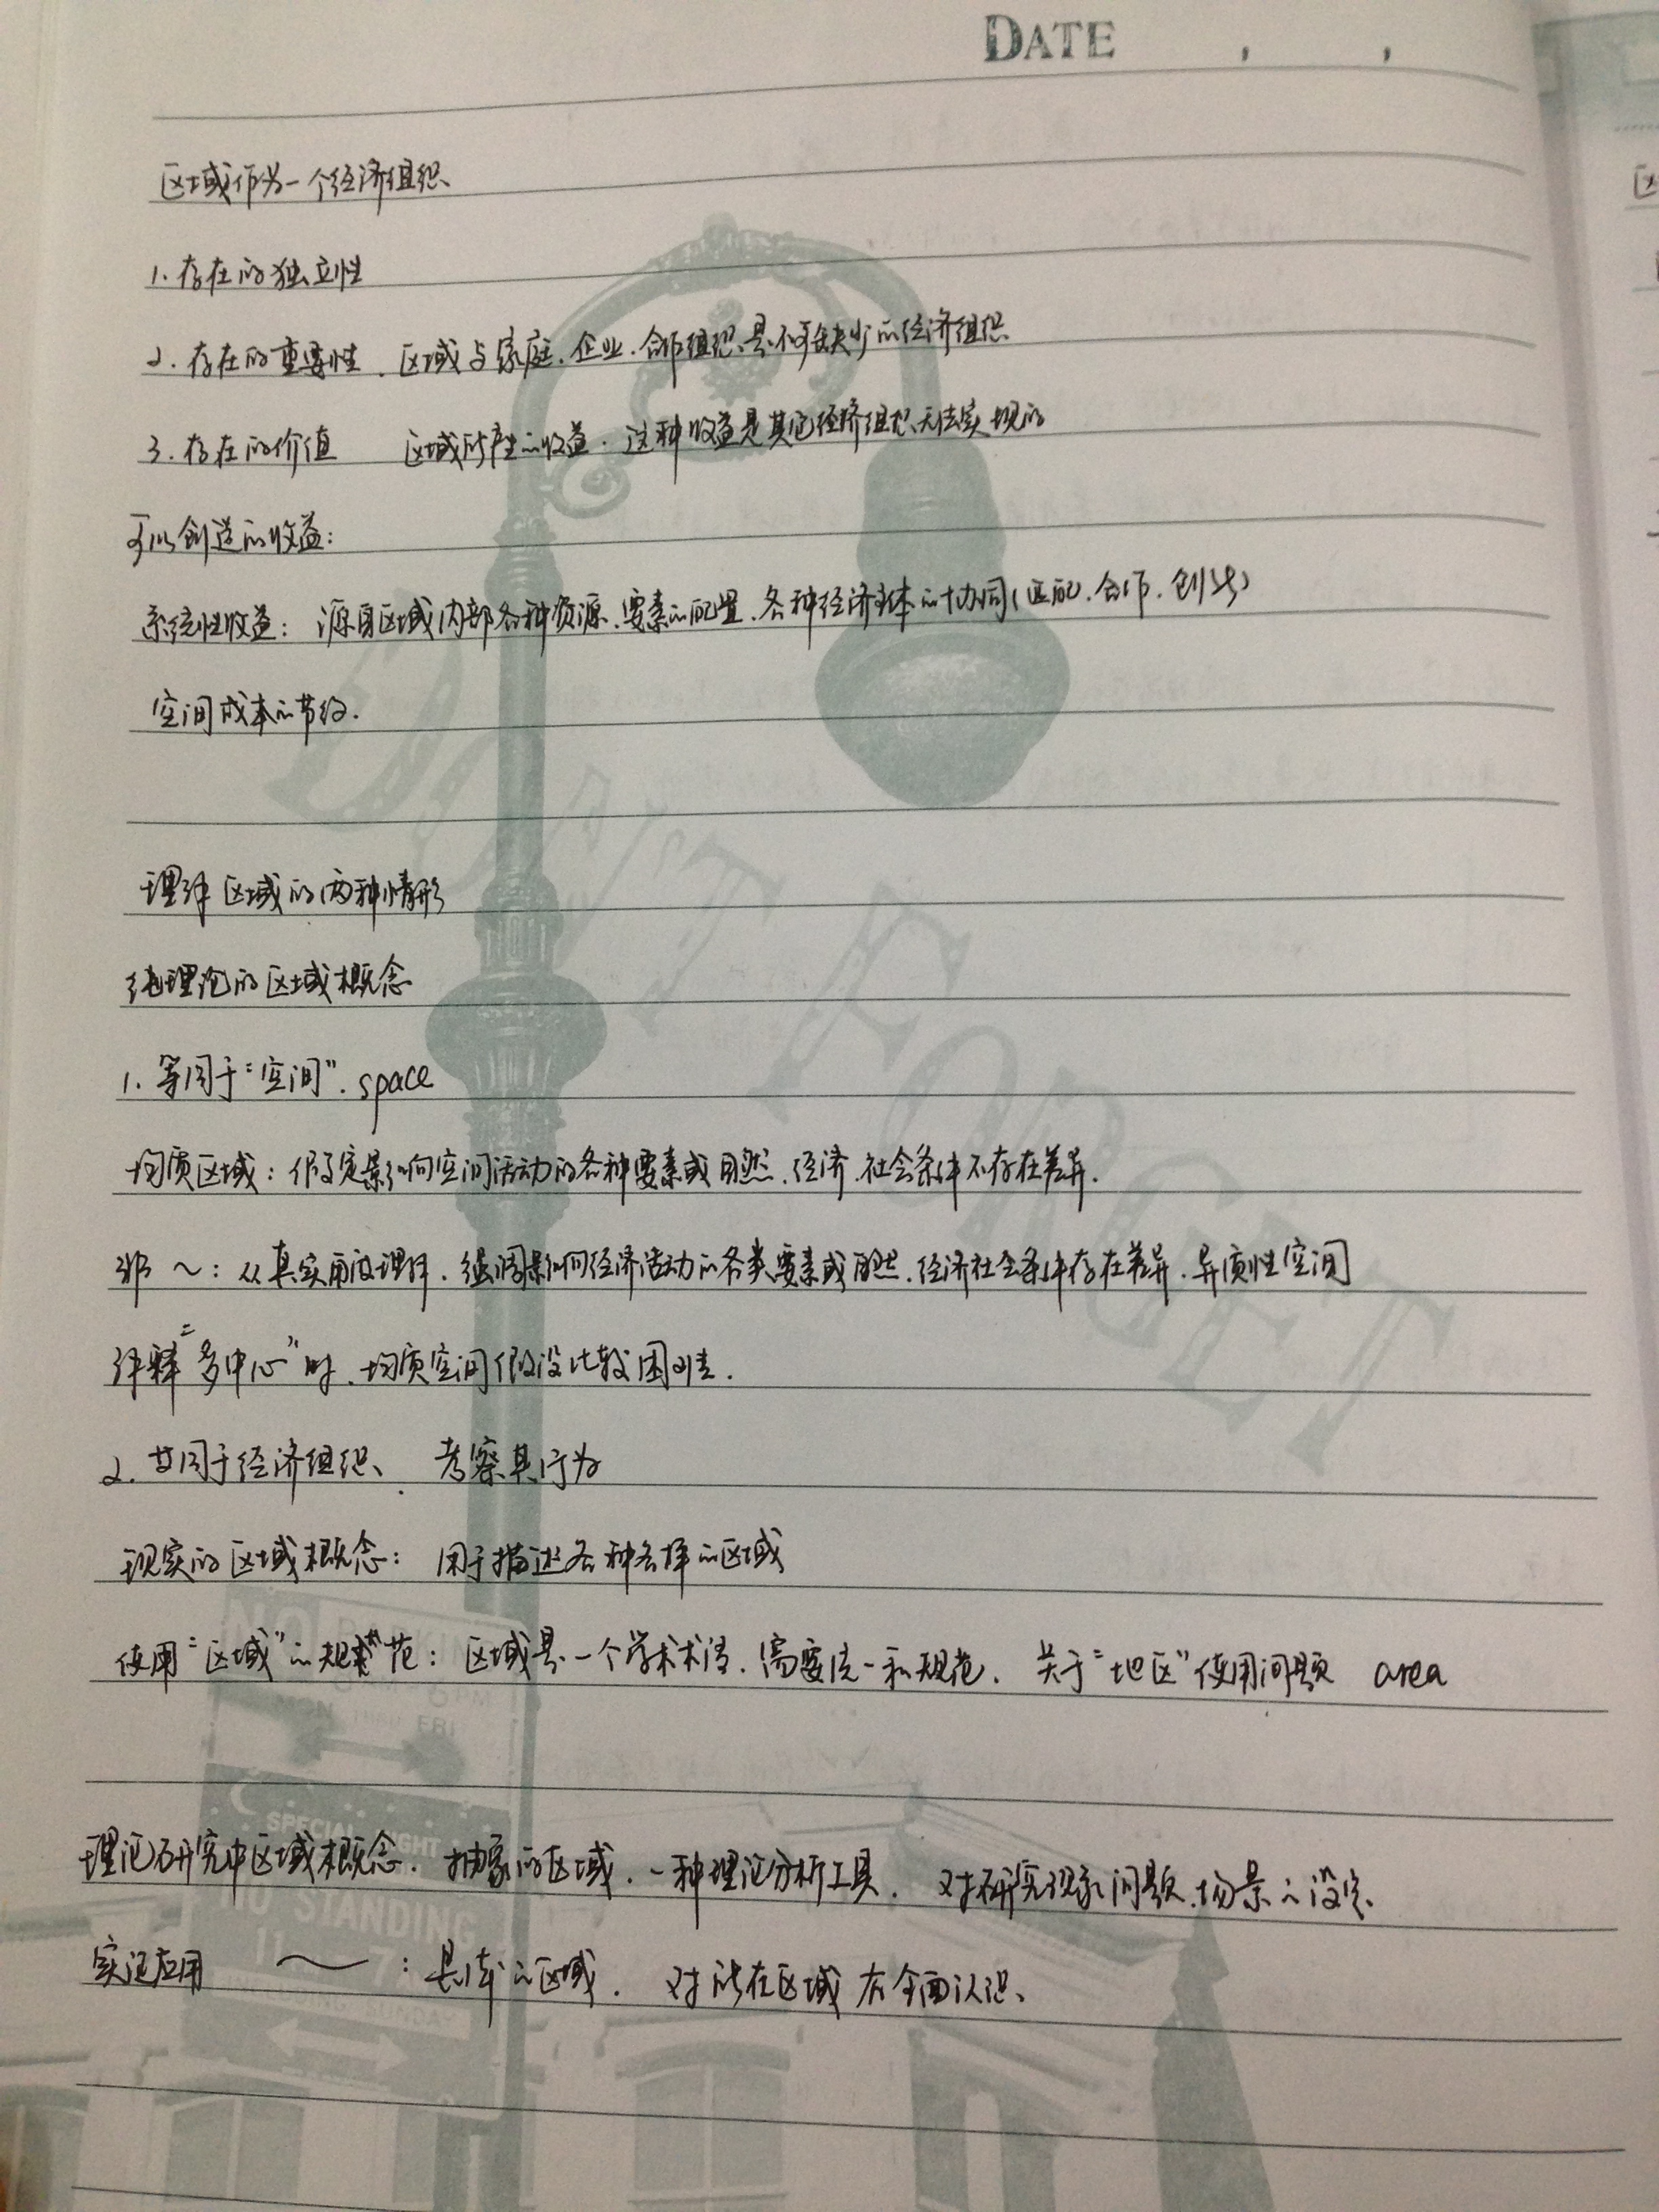 DATE , ,
区域作为一个经济组织
1. 存在的独立性
2. 存在的重要性 . 区域与家庭. 企业. 合作组织是不可缺少的经济组织
3. 存在的价值 区域所产生的收益. 这种收益是其它经济组织无法实现的
可以创造的收益:
系统性收益: 源自区域内部各种资源. 要素的配置. 各种经济主体的协同(匹配. 合作. 创新)
空间成本的节约.
理解区域的两种情形
纯理论的区域概念
1. 等同于“空间”. space
均质区域: 假定影响空间活动的各种要素或自然. 经济. 社会条件不存在差异.
非 ~: 从真实角度理解. 强调影响经济活动的各类要素或自然. 经济社会条件存在差异. 异质性空间
解释“多中心”时. 均质空间假设比较困难.
2. 等同于经济组织、 考察其行为
现实的区域概念: 用于描述各种各样的区域
使用“区域”的规范: 区域是一个学术术语. 需要统一和规范. 关于“地区”使用问题 area
理论研究中区域概念. 抽象的区域. 一种理论分析工具. 对研究现象问题. 场景的设定.
实证应用 ~ : 具体的区域. 对所在区域有全面认识.
DON'T FORGET
NO PARKING
8AM 6PM
MON THRU FRI
SPECIAL NIGHT
NO STANDING
SUNDAY